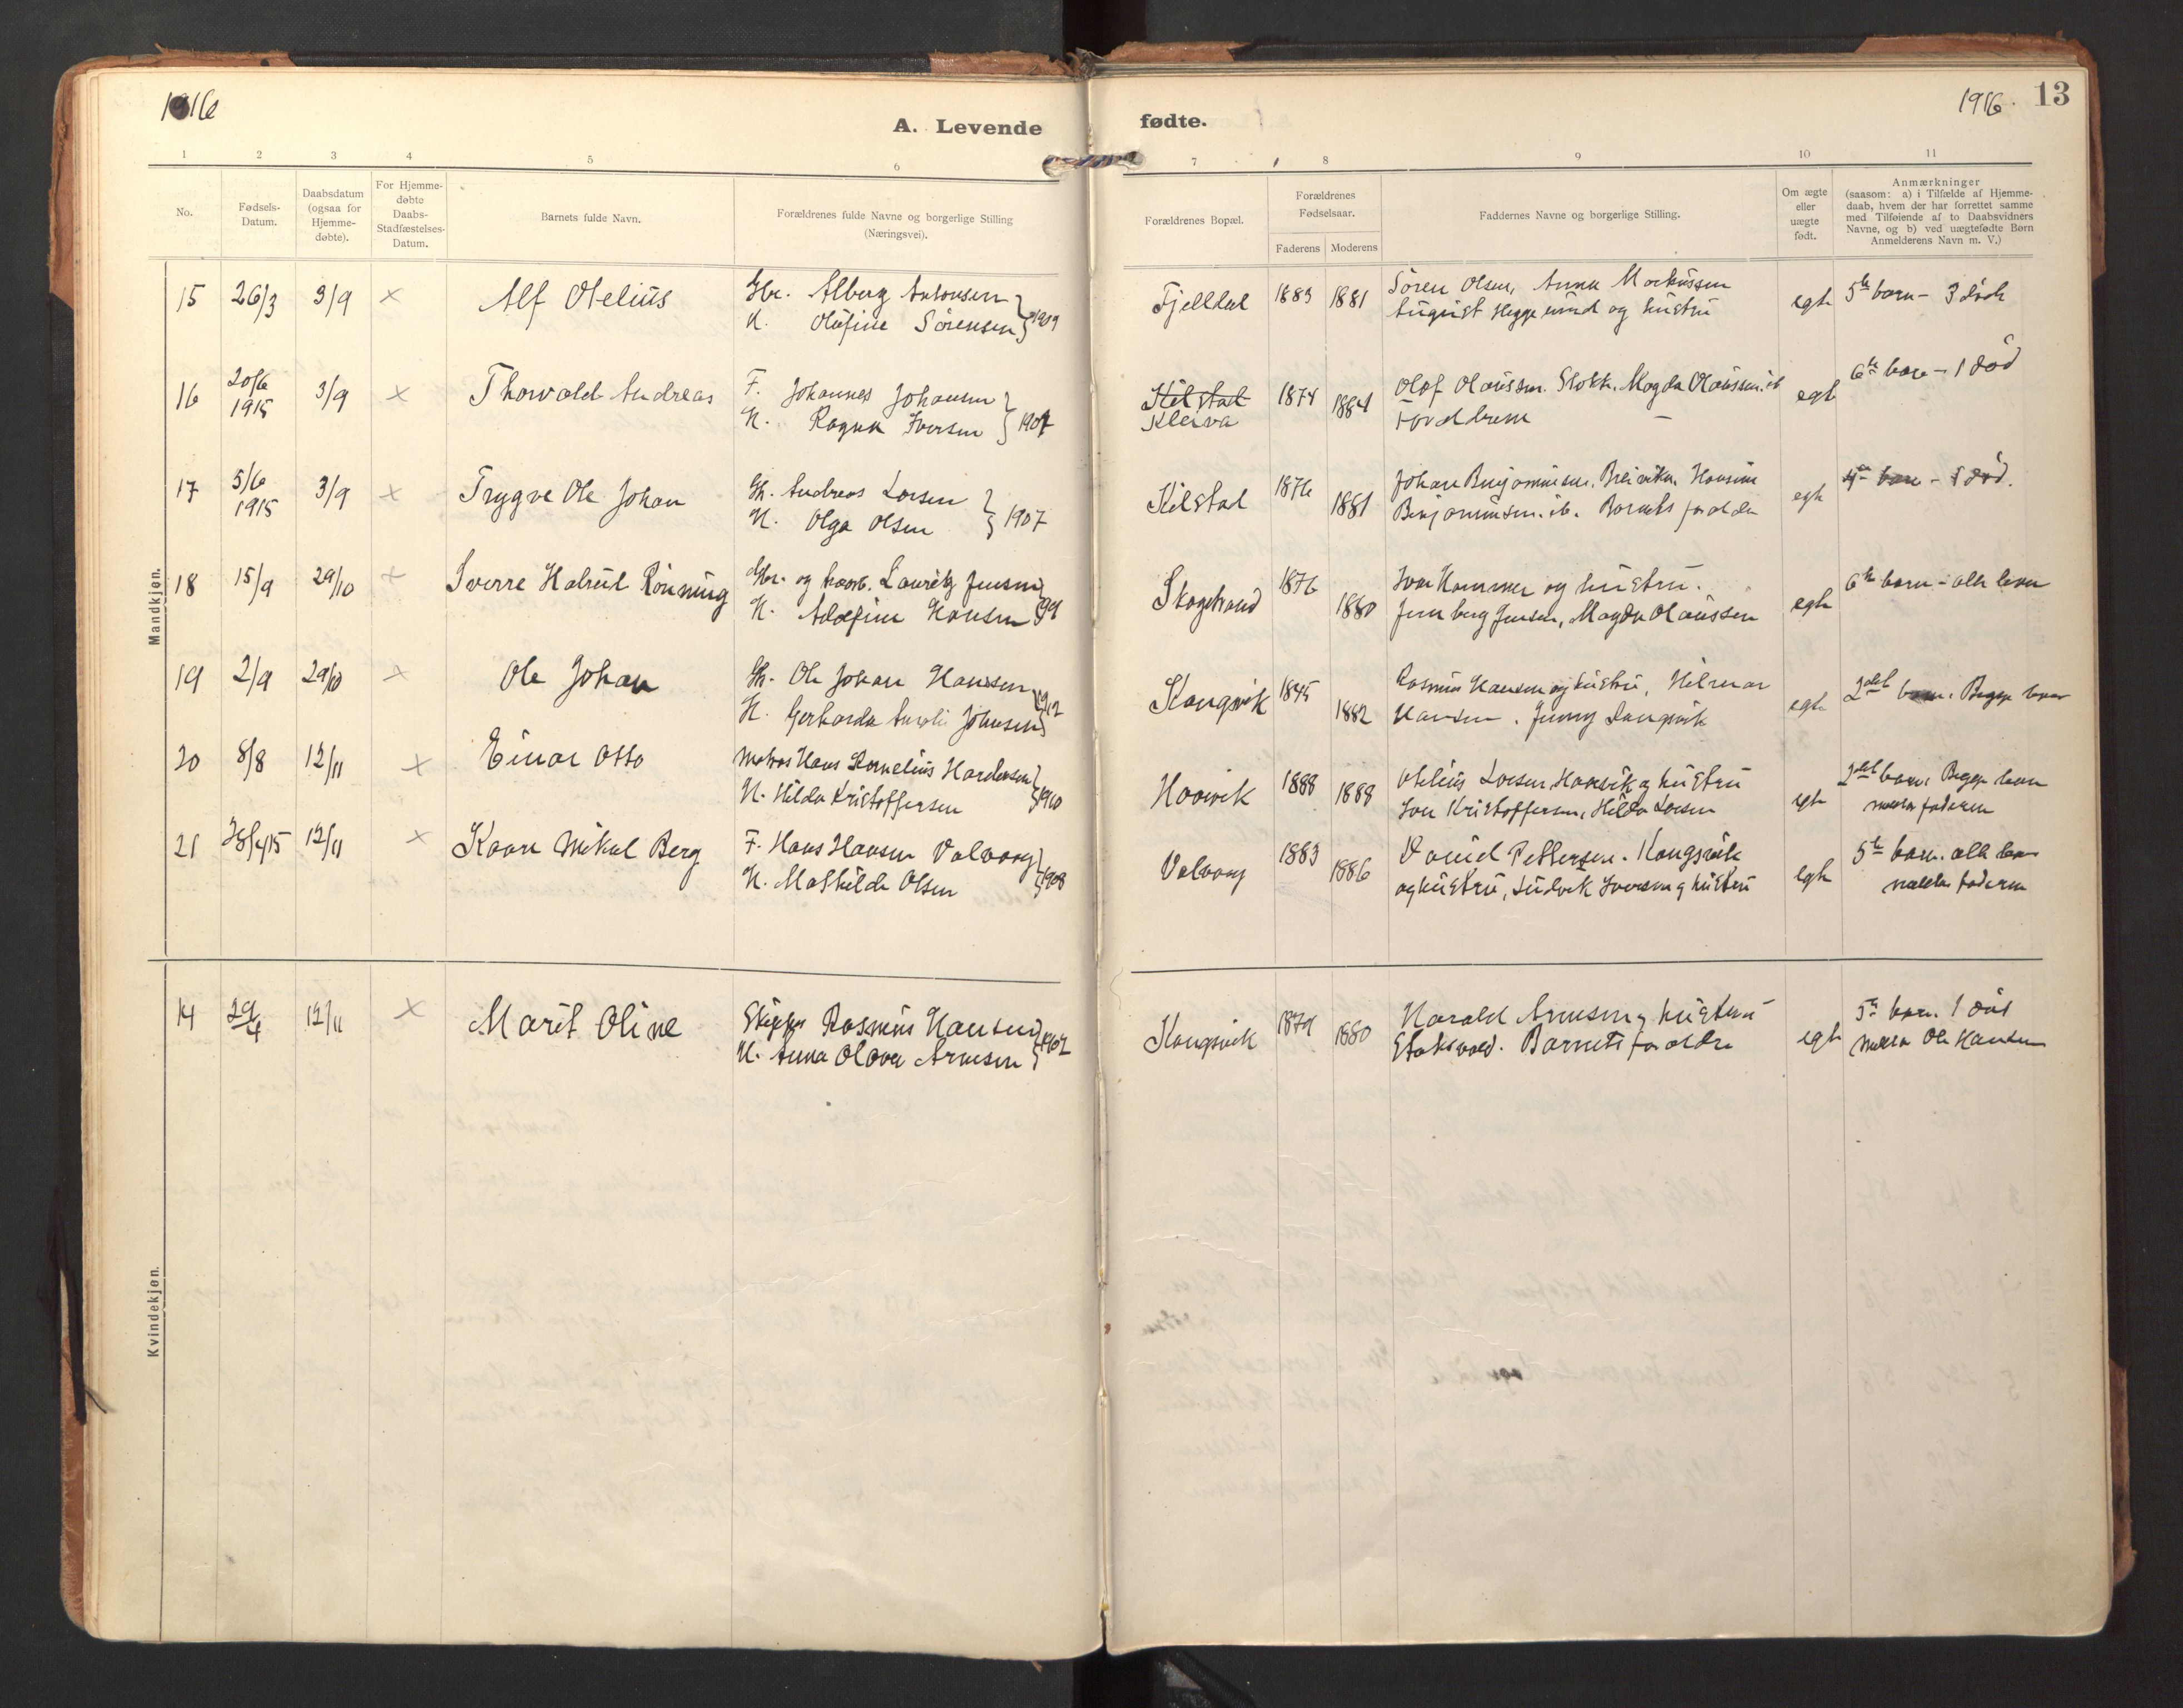 1916
A. Levende
fødte.
1916. 13
1 2 3 4 5 6 7 8 9 10 11
No.
Fødsels-
Datum.
Daabsdatum
(ogsaa for
Hjemme-
døbte).
For Hjemme-
døbte
Daabs-
Stadfæstelses-
Datum.
Barnets fulde Navn.
Forældrenes fulde Navne og borgerlige Stilling
(Næringsvei).
Forældrenes Bopæl.
Forældrenes
Fødselsaar.
Faderens Moderens
Faddernes Navne og borgerlige Stilling.
Om ægte
eller
uægte
født.
Anmærkninger
(saasom: a) i Tilfælde af Hjemme-
daab, hvem der har forrettet samme
med Tilføiende af to Daabsvidners
Navne, og b) ved uægtefødte Børn
Anmelderens Navn m. V.)
Mandkjøn.
15 26/3 3/9 × Alf Otelius Gbr. Alberg Antonsen
H. Olufine Sørensen 1909
Fjelldal 1883 1881 Sören Olsen, Anna Markussen
August Heggelund og hustru
egte 5te barn - 3 döde
16 20/6 1915 3/9 × Thorvald Andreas F. Johannes Johansen
H. Ragna Iversen 1907
Kilstad
Kleiva 1874 1884 Olaf Olaussen. Stokk. Magda Olaussen. ib
Foreldrene
egte 6te barn - 1 död
17 5/6 1915 3/9 × Trygve Ole Johan Gb. Andreas Larsen
H. Olga Olsen 1907
Kilstad 1876 1881 Johan Benjaminsen, Breivika, Hansine
Benjaminsen. ib. Barnets foreldre
egte 4de barn - 1 död.
18 15/9 29/10 × Sverre Halrul Rönning Gbr. og handl. Lauritz Jensen
H. Adolfine Hansen
Skogstrand 1876 1880 Ivar Hammer og hustru.
Jensberg Jensen, Magda Olaussen
egte 6te barn - alle lever
19 2/9 29/10 × Ole Johan Gb. Ole Johan Hansen
H. Gerharda Amalie Johansen 1912
Kongsvik 1845 1882 Rasmus Hansen og hustru, Hilmar
Hansen. Jenny Langvik
egte 2det barn. Begge lever
20 8/8 12/11 × Einar Otto Matros Hans Kornelius Hardensen
H. Hilda Kristoffersen 1910
Haavik 1888 1888 Otelius Larsen, Haavik og hustru
Ivar Kristoffersen, Hilda Larsen
egte 2det barn. Begge lever
meldte faderen
21 12/11 × Kaare Mikal Berg F. Hans Hansen Valvaag
H. Mathilde Olsen 1908
Valvaag 1883 1886 Daniel Pettersen. Kongsvik
og hustru, Ludvik Iversen og hustru
egte 5te barn. alle lever
meldte faderen
Kvindekjøn.
14 29/4 12/11 × Marit Oline Skipper Rasmus Hansen
H. Anna Olava Arnesen 1902
Kongsvik 1879 1880 Harald Arnesen og hustru
Stoksvold. Barnets foreldre
egte 5te barn. 1 död
meldte Ole Hansen